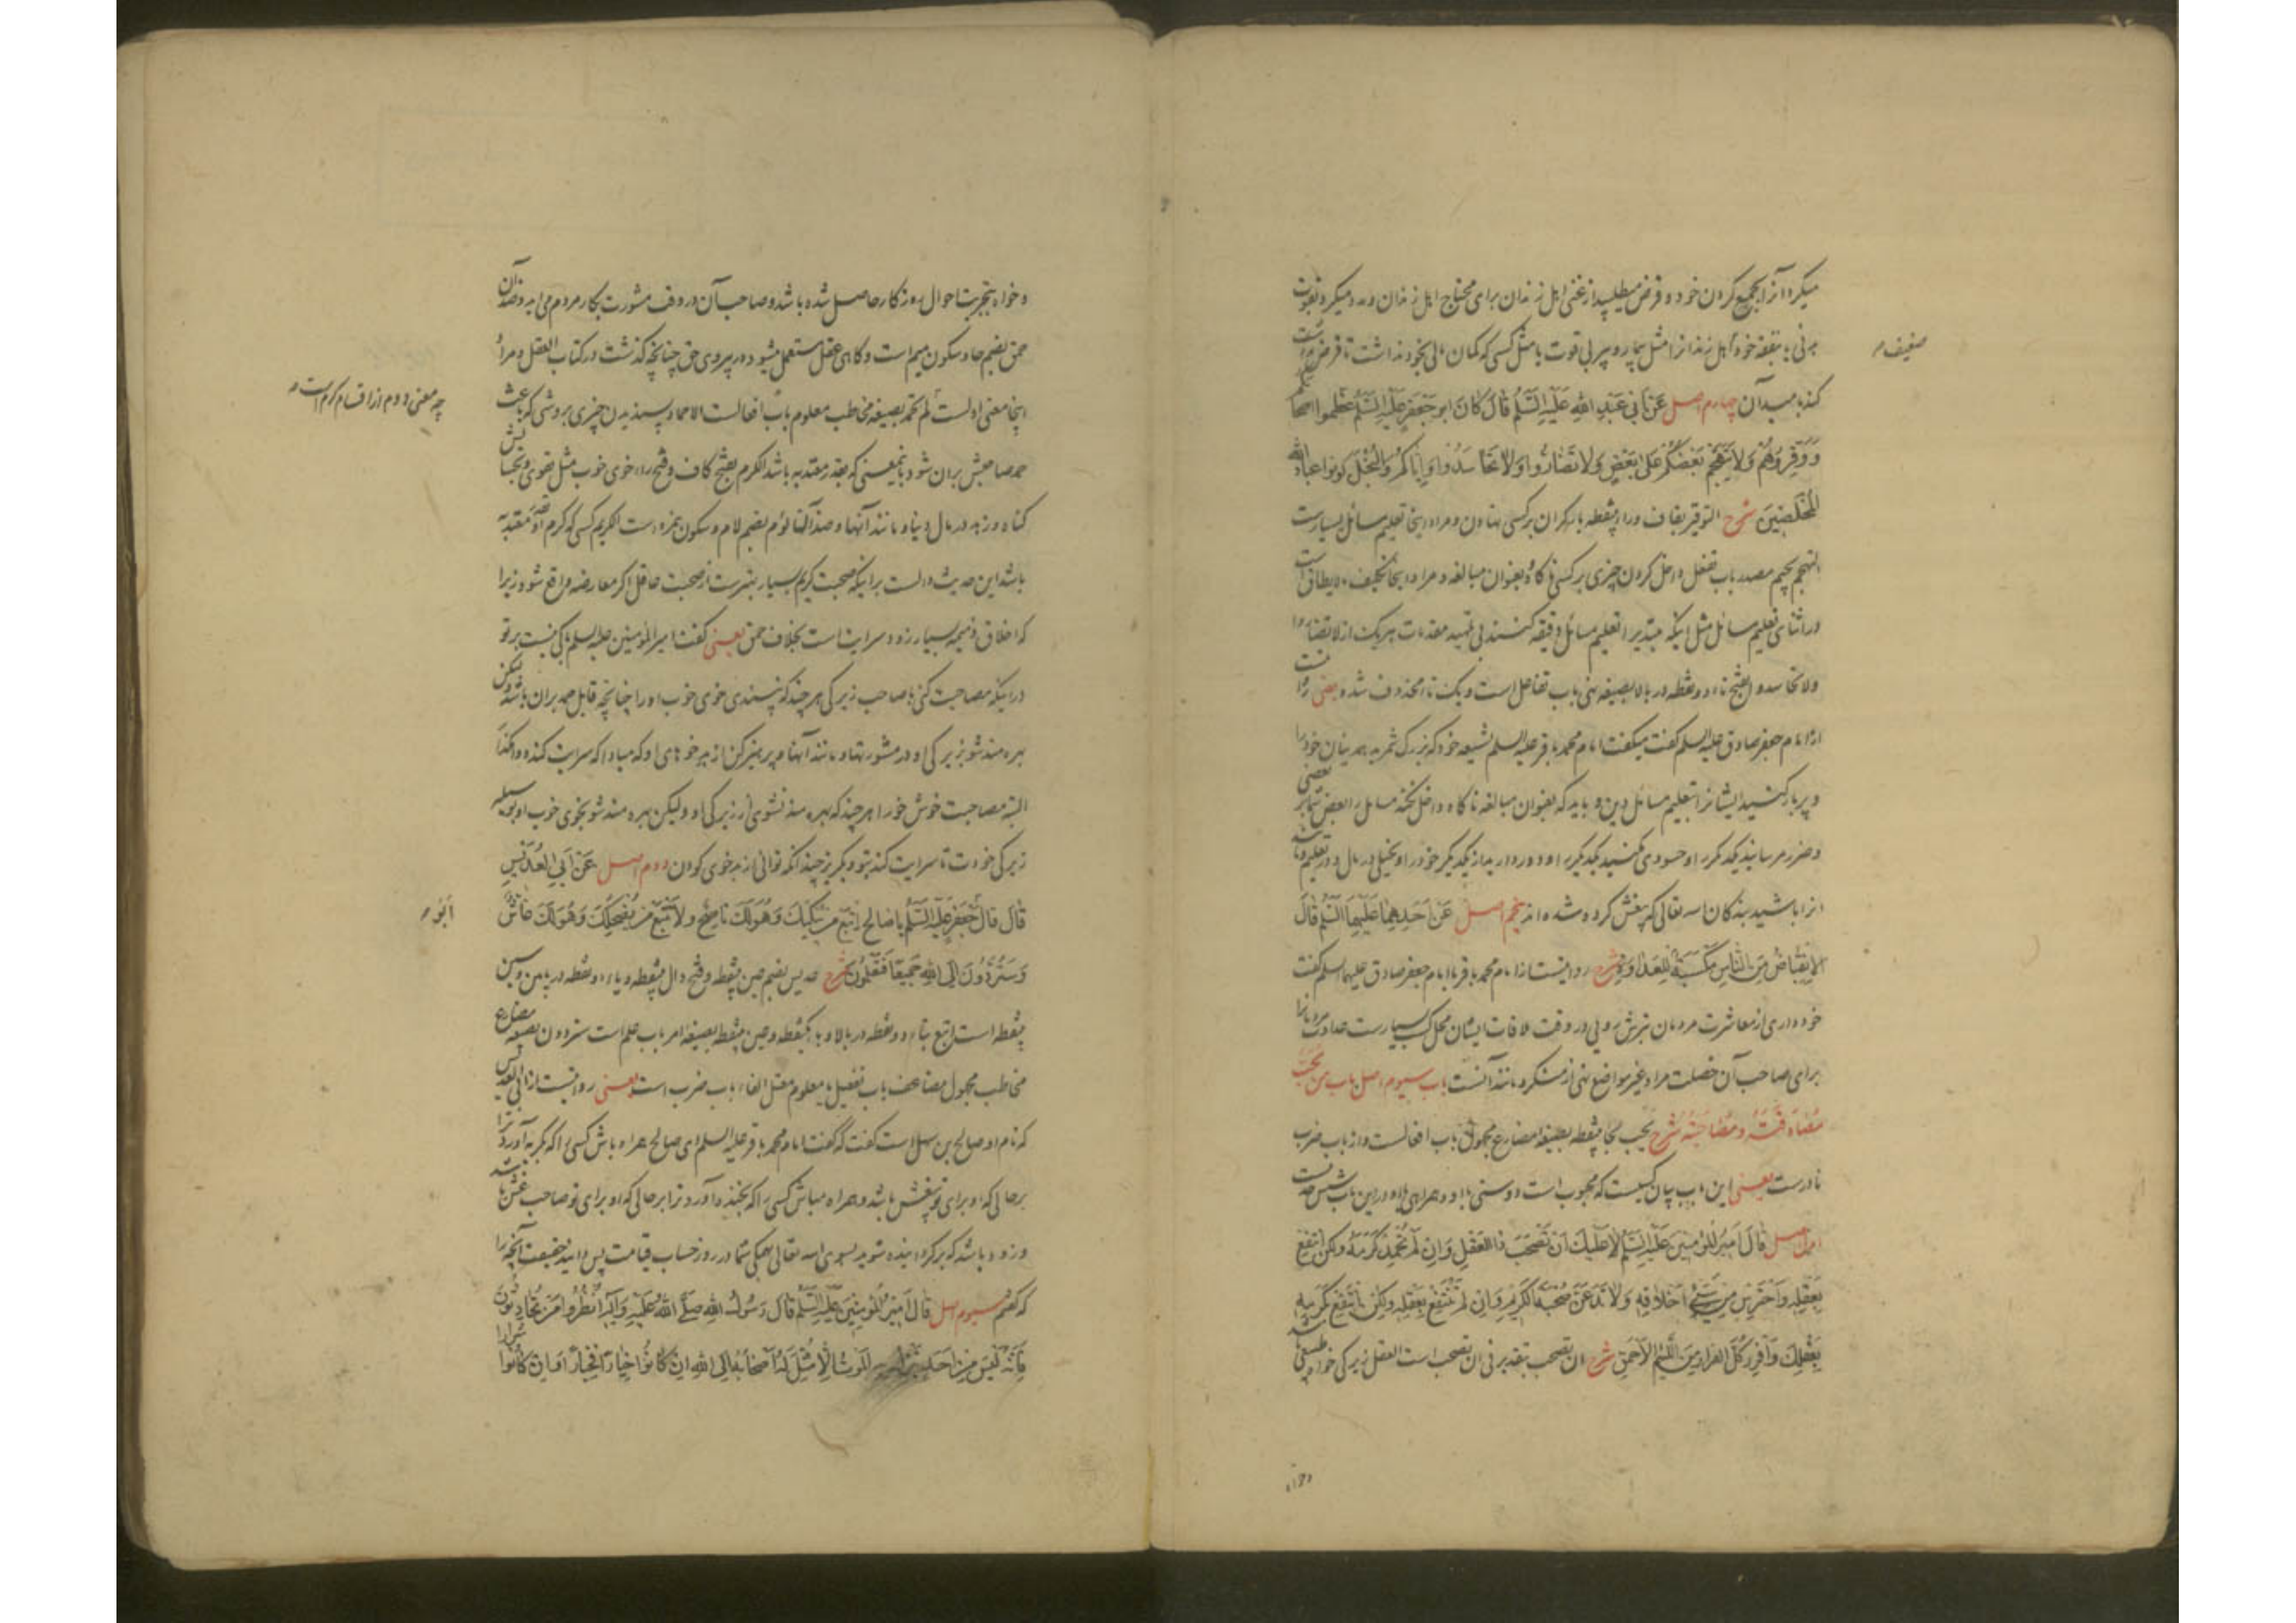 میکرد آنرا بجمیع کردن خود و قرض میطلبید از غنی اهل زندان برای محتاج اهل زندان و مدد میکرد بقوت
ضعیف
کند با میدان چهارم اصل عَنْ أَبِي عَبْدِ اللهِ عَلَيْهِ السَّلَمُ قَالَ كَانَ ابو جَعْفَرٍ عَلَيْهِ السَّلَمُ عَظِّموا اصحابكم
وَوَقِّرُوهُمْ وَلَا يَتَهَجَّمُ بَعْضُكُمْ عَلَى بَعْضٍ وَلَا تَضَارُّوا وَلَا تَحَاسَدُوا وَإِيَّاكُمْ وَالْبُخْلَ كونوا عباد الله
الْمُخْلَصِينَ شرح التوقیر بقاف و راء بینقطه بار کران بر کسی نهادن و مراد اینجا تعلیم مسائل بسیارست
التهجم بجیم مصدر باب تفعل داخل کردن چیزی بر کسی ناکاه بعنوان مبالغه و مراد اینجا تکلیف ما لا یطاق است
در اثنای تعلیم مسائل مثل اینکه مبتدیرا تعلیم مسائل دقیقه کنند بی تمهید مقدمات هر یک از لا تضاروا
ولا تحاسدوا بفتح تاء دو نقطه در بالا بصیغه نهی باب تفاعل است و یک تا محذوف شده یعنی روایت
از امام جعفر صادق علیه السلم گفت میگفت امام محمد باقر علیه السلم شیعه خود که بزرک شمرید همدینان خود را
و پربار کنید ایشانرا بتعلیم مسائل دین و باید که بعنوان مبالغه ناکاه داخل نکند مسائل را بعض شما بر بعضی
و ضرر مرسانید یکدیگر را و حسودی مکنید یکدیگر را و دور دارید از یکدیگر خود را و بخیلی در مال و در تعلیم و مانند
انرا باشید بندکان الله تعالی که بیغش کرده شده اند پنجم اصل عَنْ أَحَدِهِمَا عَلَيْهِمَا السَّلَمُ قَالَ
الاِنْقِبَاضُ مِنَ النَّاسِ مَكْسَبَةٌ لِلْعَدَاوَةِ شرح روایتست از امام محمد باقر یا امام جعفر صادق علیهما السلم گفت
خودداری از معاشرت مردمان بترش رویی در وقت ملاقات ایشان محل کسب بسیارست عداوت مردمانرا
برای صاحب آن خصلت مراد غیر مواضع نهی از منکر و مانند آنست باب سیوم اصل باب من یجب
مُصَادَقَتُهُ وَمُصَاحَبَتُهُ شرح یحب بحا بینقطه بصیغه مضارع مجهول باب افعالست و از باب ضرب
نادرست یعنی این باب بیان کسیست که محبوب است دوستی با او و همراهی با او در این باب شش حدیث
اول اصل قَالَ أَمِيرُ الْمُؤْمِنِينَ عَلَيْهِ السَّلَمُ لَا عَلَيْكَ أَنْ تَصْحَبَ ذَا الْعَقْلِ وَإِنْ لَمْ تُحْمِدْ كَرَمَهُ وَلَكِنِ انْتَفِعْ
بِعَقْلِهِ وَاحْتَرِسْ مِنْ سَيِّئِ أَخْلَاقِهِ وَلَا تَدَعَنَّ صُحْبَةَ الْكَرِيمِ وَإِنْ لَمْ تَنْتَفِعْ بِعَقْلِهِ وَلَكِنِ انْتَفِعْ بِكَرَمِهِ
بِعَقْلِكَ وَافْرِرْ كُلَّ الْفِرَارِ مِنَ اللَّئِيمِ الْأَحْمَقِ شرح ان تصحب بتقدیر فی ان تصحب است العقل زیرکی خواه طبیعی باشد
و خواه بتجربت احوال روزکار حاصل شده باشد و صاحب آن در وقت مشورت بکار مردم می اید و ضد آن
حمق بضم حا و سکون میم است و کاهی عقل مستعمل میشود در پیروی حق چنانچه کذشت در کتاب العقل و مراد
اینجا معنی اولست لم تحمد بصیغه مخاطب معلوم باب افعالست الاحماد پسندیدن چیزی بروشی که باعث
چه معنی دوم از اقسام کرم است
حمد صاحبش بران شود باینمعنی که بقدر معتد به باشد الکرم بفتح کاف و فتح راء خوی خوب مثل تقوی و بخشش
کناه و زهد در مال دنیا و مانند آنها و ضد آنها لؤم بضم لام و سکون همزه است الکریم کسی که کرم او بقدر معتد به
باشد این حدیث دالست بر اینکه صحبت کریم بسیار بهترست از صحبت عاقل اکر معارضه واقع شود زیرا
که اخلاق ذمیمه بسیار زود سرایت است بخلاف حمق یعنی کفت امیر المؤمنین علیه السلم باکی نیست بر تو
در اینکه مصاحبت کنی با صاحب زیرکی هر چند که نپسندی خوی خوب او را چنانچه قابل حمد بران باشد و لیکن
بهره مند شو بزیرکی او در مشورتها و مانند آنها و پرهیز کن از بد خوهای او که مبادا که سرایت کند و وامکذار
البته مصاحبت خوش خو را هر چند که بهره مند نشوی از زیرکی او و لیکن بهره مند شو بخوی خوب او بوسیله
زیرکی خودت تا سرایت کند بتو و بکریز چندانکه توانی از بد خوی کودن دوم اصل عَنْ أَبِي الْعُدَيْسِ
قَالَ قَالَ جَعْفَرٍ عَلَيْهِ السَّلَمُ يَا صَالِحُ اتَّبِعْ مَنْ يُبْكِيكَ وَهُوَ لَكَ نَاصِحٌ وَلَا تَتَّبِعْ مَنْ يُضْحِكُكَ وَهُوَ لَكَ غَاشٌّ
ابو
وَسَتُرَدُّونَ إِلَى اللهِ جَمِيعًا فَتَعْلَمُونَ شرح عدیس بضم عین بینقطه و فتح دال بینقطه و یاء دو نقطه در پایین و سین
بینقطه است اتبع بتاء دو نقطه در بالا و باء یکنقطه و عین بینقطه بصیغه امر باب علم است ستردون بصیغه مضارع
مخاطب مجهول مضاعف باب تفعیل یا معلوم معتل الفاء باب ضرب است یعنی روایتست از ابی العدیس
که نام او صالح بن سهل است کفت که کفت امام محمد باقر علیه السلم ای صالح همراه باش کسی را که بکریه آورد ترا
بر حالی که او برای تو بیغش باشد و همراه مباش کسی را که بخنده آورد ترا بر حالی که او برای تو صاحب غش باشد
و زود باشد که برکردانیده شوید بسوی الله تعالی همکی شما در روز حساب قیامت پس دانید حقیقت آنچه را
که کفتم سیوم اصل قَالَ أَمِيرُ الْمُؤْمِنِينَ عَلَيْهِ السَّلَمُ قَالَ رَسُولُ اللهِ صَلَّى اللهُ عَلَيْهِ وَآلِهِ انْظُرُوا مَنْ تُحَادِثُونَ
فَإِنَّهُ لَيْسَ مِنْ أَحَدٍ يَنْزِلُ بِهِ الْمَوْتُ إِلَّا مُثِّلَ لَهُ أَصْحَابُهُ إِلَى اللهِ إِنْ كَانُوا خِيَارًا فَخِيَارًا وَإِنْ كَانُوا شِرَارًا